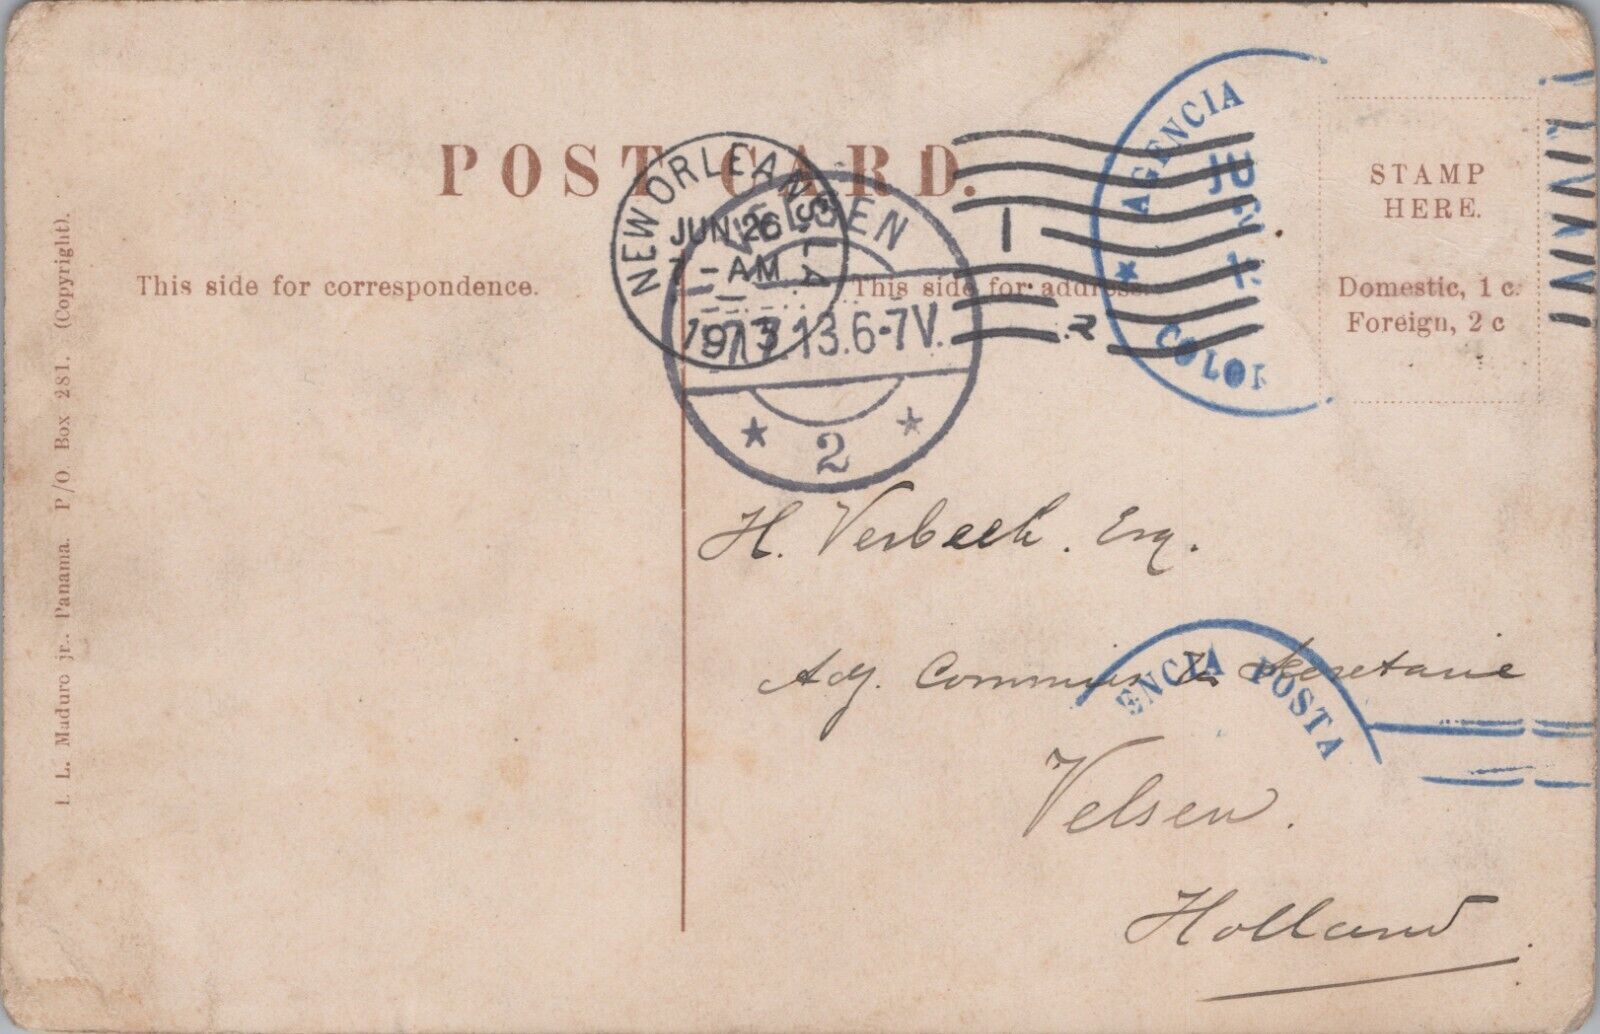 POST CARD.
This side for correspondence.
This side for address.
STAMP
HERE.
Domestic, 1 c.
Foreign, 2 c
I. L. Maduro jr., Panama. P/O. Box 281. (Copyright).
NEW ORLEANS, LA
JUN 26
7 - AM
1913
VELSEN
7.13.6-7V.
2
AGENCIA
JU
COLON
H. Verbeek. Esq.
Adj. Commies ter Secretarie
ENCIA POSTA
Velsen.
Holland.